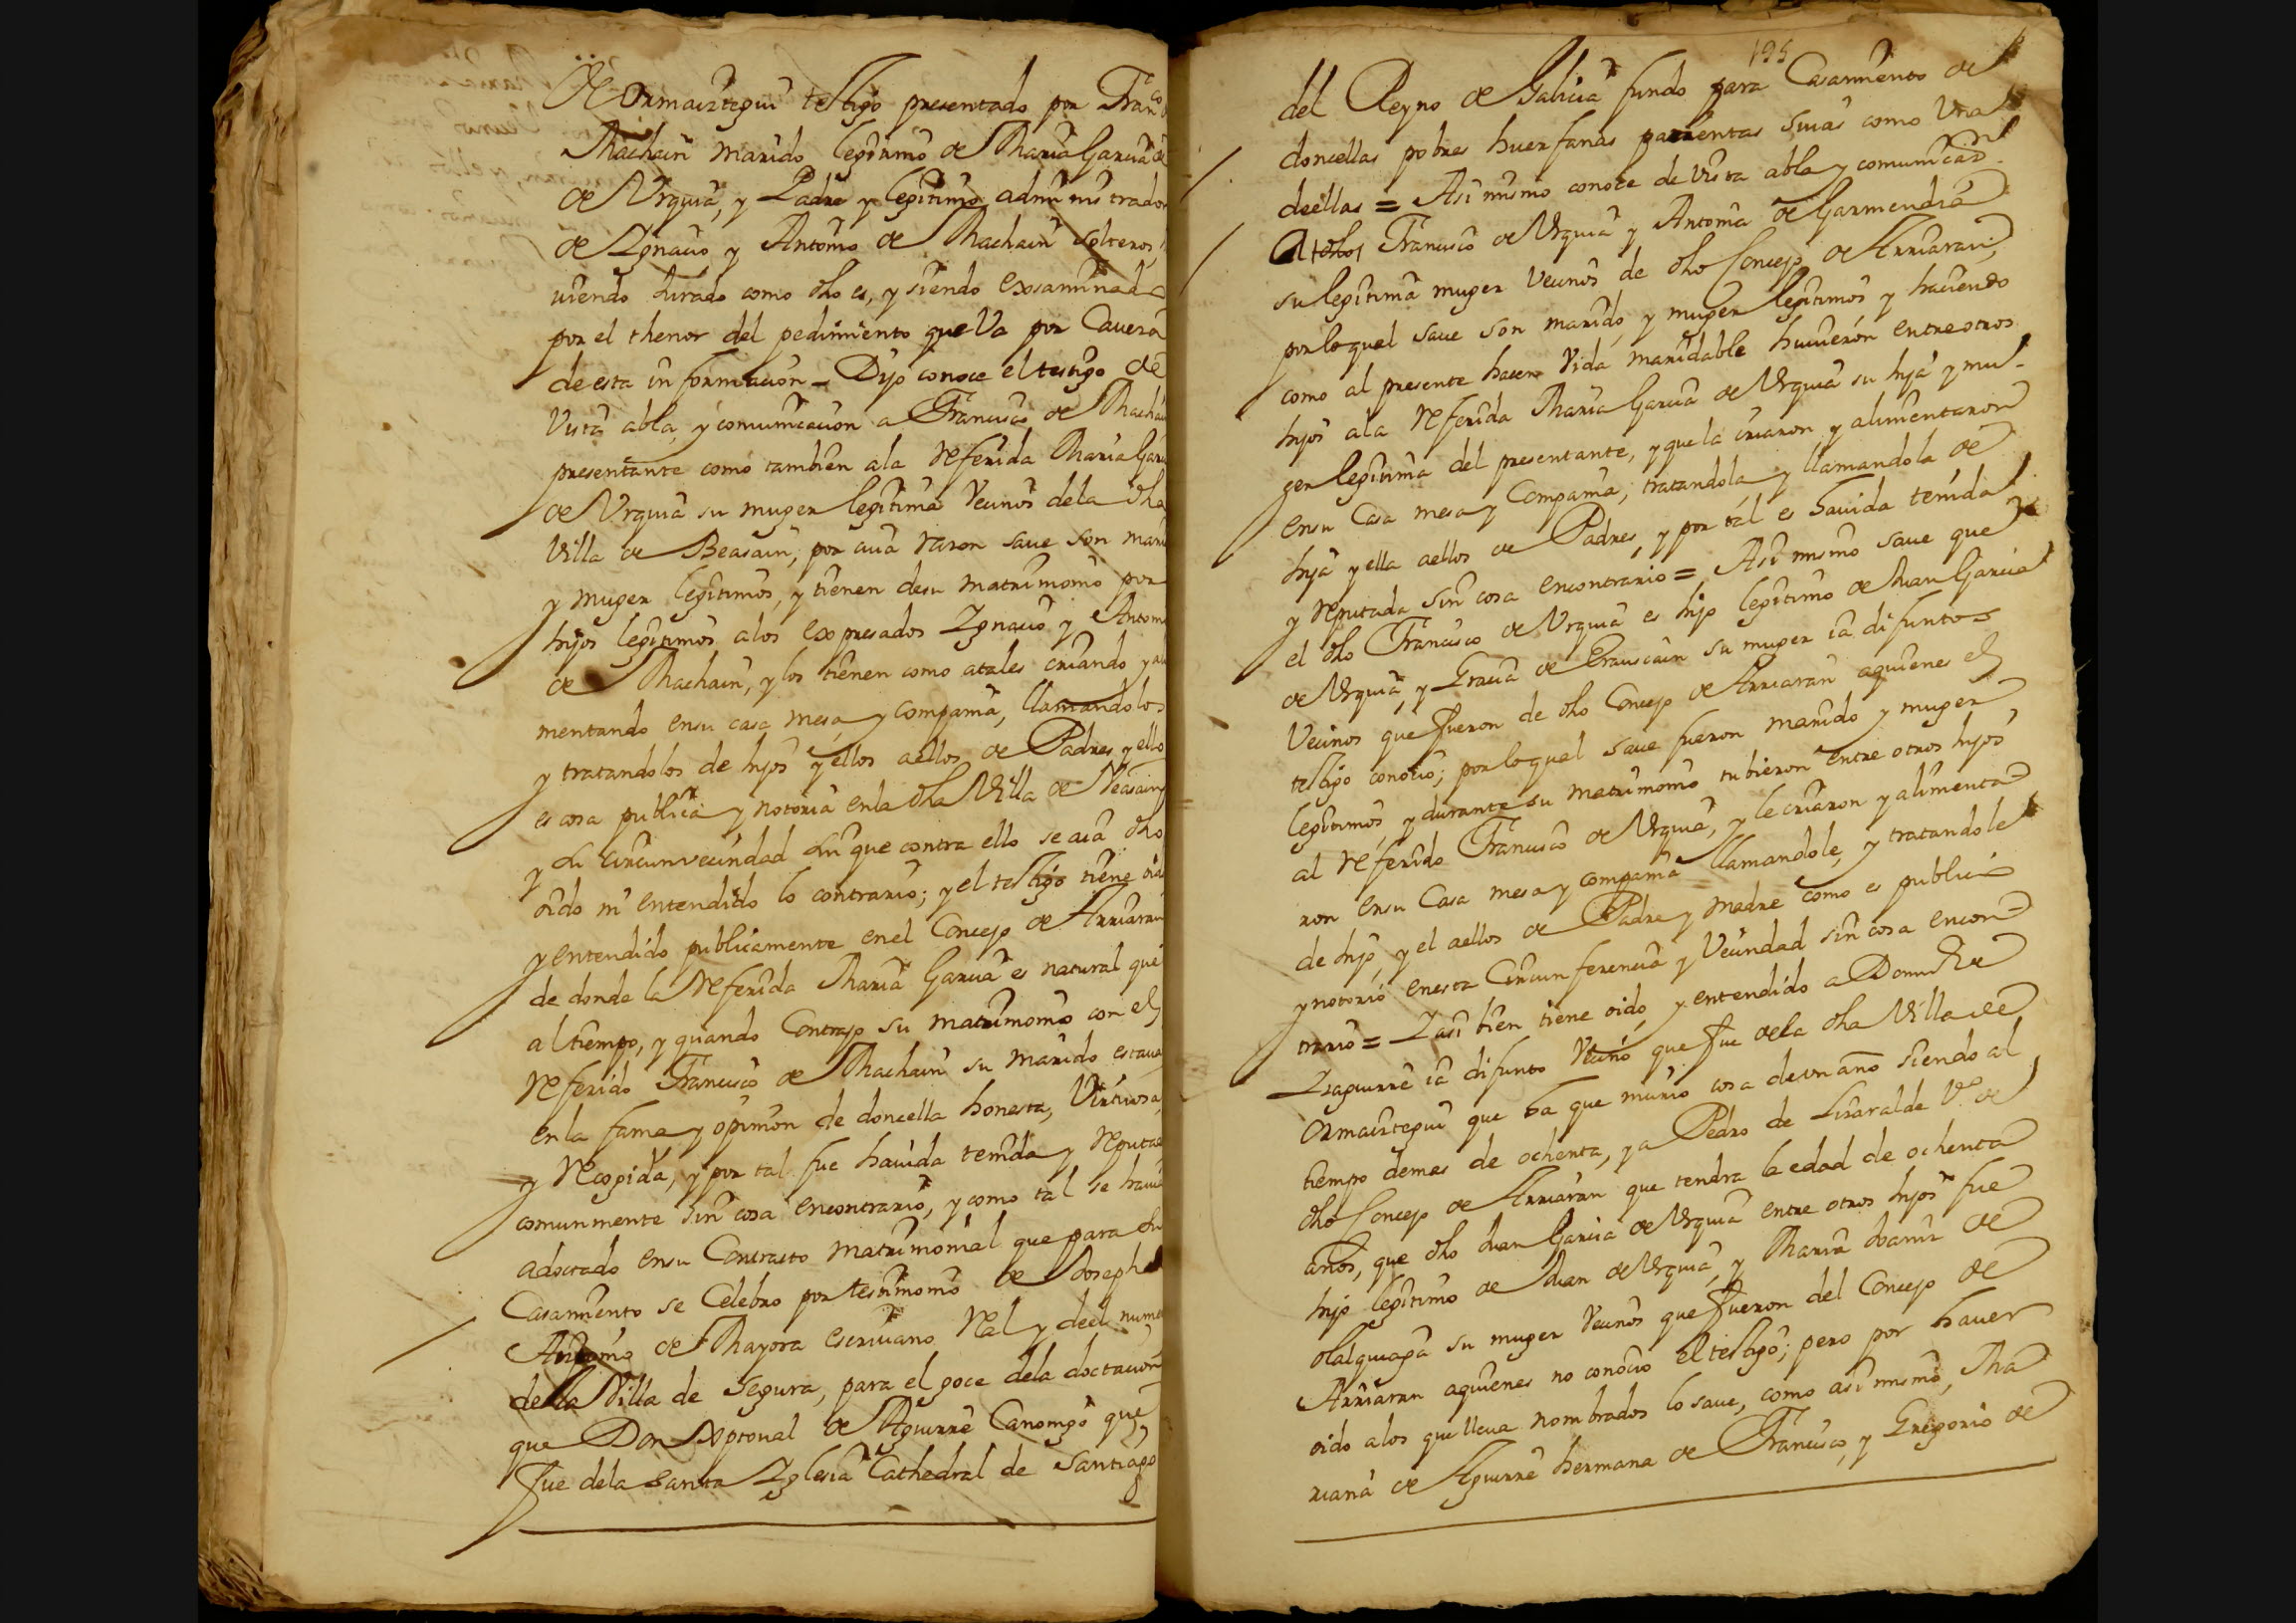 de Ormaiztegui testigo presentado por Fran.co
Machain marido legitimo de Maria Garcia de
de Urquia, y Padre y legitimo administrador
de Ygnacio y Antonio de Machain solteros,
uiendo Jurado como dho es, y siendo exsaminado
por el thenor del pedimiento que Va por Cauera
de esta informacion = Dijo conoce el testigo de
Vista abla, y comunicacion a Francisco de Machain
presentante como tambien ala referida Maria Garcia
de Urquia su muger legitima Vecinos dela dha
Villa de Beasain, por cuia razon saue son marido
y muger legitimos, y tienen desu matrimonio por
hijos legitimos alos expresados Ygnacio y Antonio
de Machain, y los tienen como atales criando y ali
mentando ensu casa mesa y compania, llamandolos
y tratandolos de hijos y ellos aellos de Padres, y ello
es cosa publica y notoria enla dha Villa de Veasain
y su circunvecindad sin que contra ello se aia dho
oido ni entendido lo contrario; y el testigo tiene oido
y entendido publicamente enel Concejo de Arriaran
de donde la referida Maria Garcia es natural que
al tiempo, y quando Contrajo su matrimonio con el
referido Francisco de Machain su marido estaua
en la fama y opinion de doncella honesta, Virtuosa,
y Recogida, y por tal fue hauida tenida y reputada
comunmente sin cosa encontrario, y como tal se hauia
adoctado ensu Contracto matrimonial que para su
Casamiento se Celebro por testimonio de Joseph
Antonio de Mayora escriuano Real y del nume
dela Villa de Segura, para el goce dela doctacion
que Don Xptoual de Aguirre Canonigo que
fue dela Santa Yglesia Cathedral de Santiago
195
del Reyno de Galicia fundo para Casamiento de
doncellas pobres huerfanas parientas suias como Una
deellas = Asi mismo conoce de vista abla y comunicaon
a dhos Francisco de Urquia y Antonia de Garmendia
su legitima muger Vecinos de dho Concejo de Arriaran,
por lo qual saue son marido, y muger legitimos y haciendo
como al presente hacen Vida maridable huuieron entre otros
hijos ala referida Maria Garcia de Urquia su hija y mu-
ger legitima del presentante, y que la criaron y alimentaron
ensu Casa mesa y Compania, tratandola y llamandola de
hija y ella aellos de Padres, y por tal es hauida tenida
y reputada sin cosa encontrario = Asi mismo saue que
el dho Francisco de Urquia es hijo legitimo de Juan Garcia
de Urquia, y Gracia de Erauscain su muger ia difuntos
Vecinos que fueron de dho Concejo de Arriaran aquienes el
testigo conocio; por lo qual saue fueron marido y muger
legitimos, y durante su matrimonio tubieron entre otros hijos
al referido Francisco de Urquia, y le criaron y alimenta-
ron ensu Casa mesa y compania llamandole, y tratandole
de hijo, y el aellos de Padre y madre como es publico
y notorio enesta Circunferencia y Vecindad sin cosa encon-
trario = Y asi bien tiene oido, y entendido a Domingo de
Yzaguirre ia difunto Vecino que fue dela dha Villa de
Ormaiztegui que ha que murio cosa de vn año siendo al
tiempo demas de ochenta, y a Pedro de Lizaralde V.o de
dho Concejo de Arriaran que tendra la edad de ochenta
años, que dho Juan Garcia de Urquia entre otros hijos fue
hijo legitimo de Juan de Urquia, y Maria de
Olalquiaga su muger Vecinos que fueron del Concejo de
Arriaran aquienes no conocio el testigo; pero por hauer
oido alos que lleua nombrados lo saue, como asi mismo, Ma
riana de Aguirre hermana de Francisco, y Gregorio de